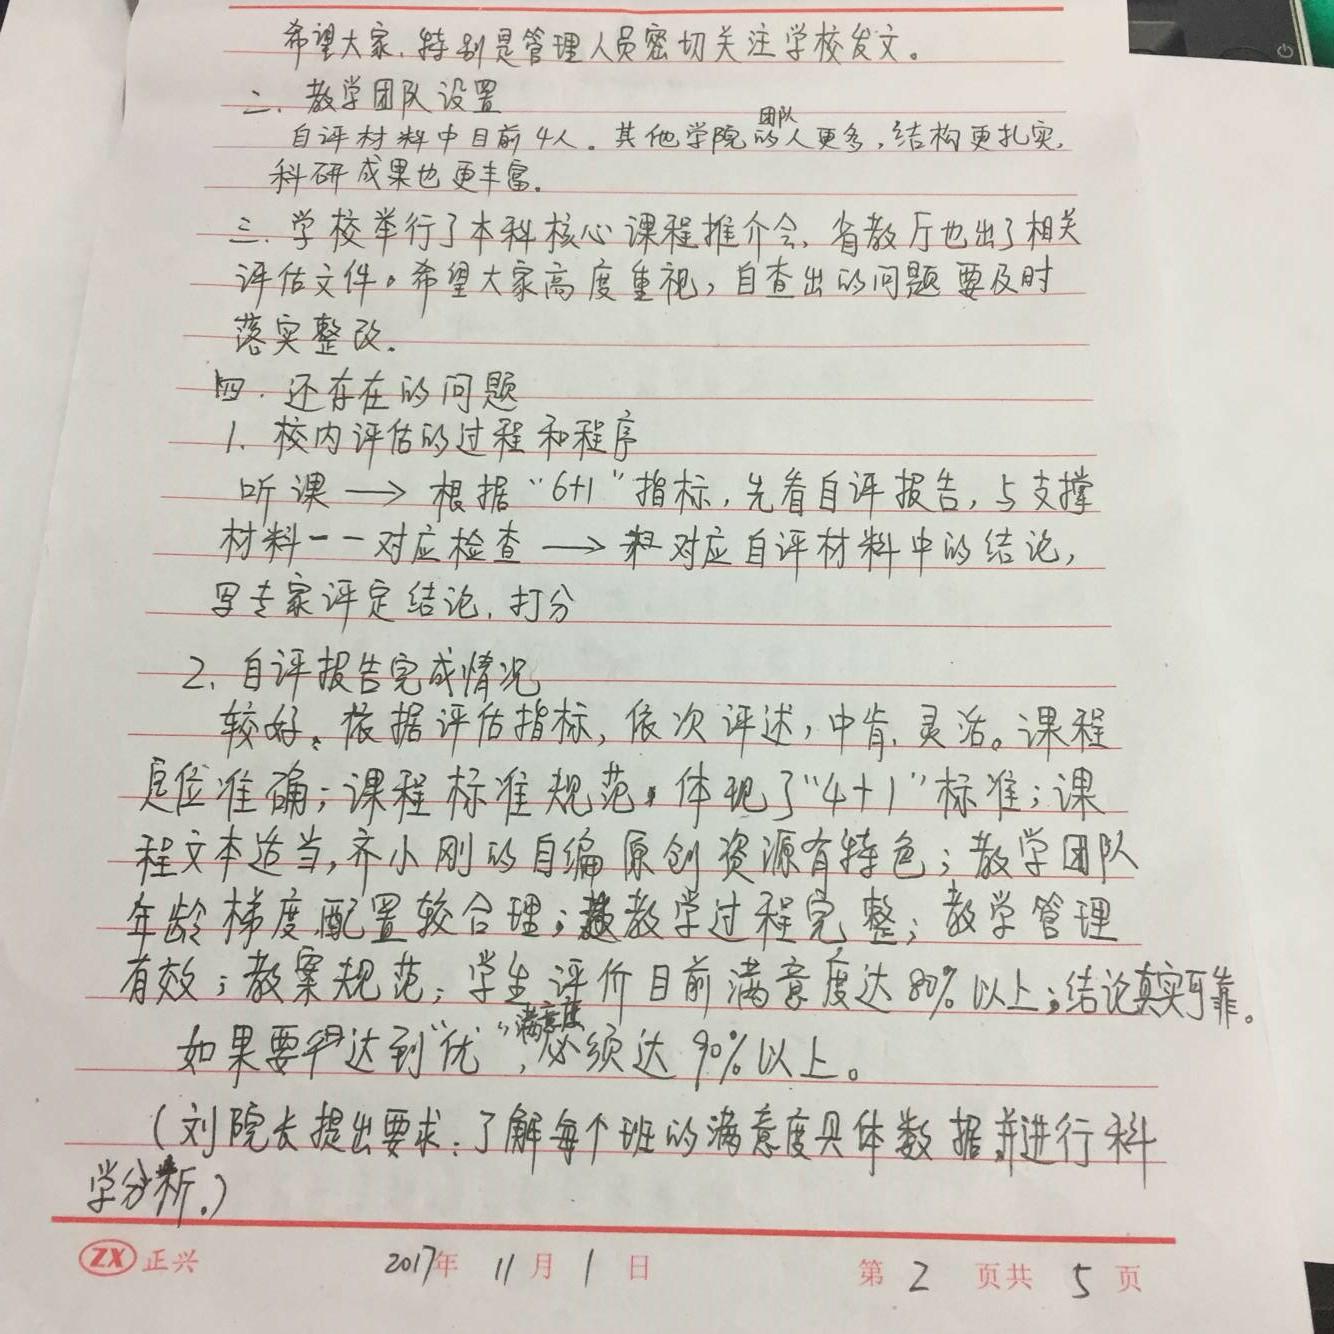 希望大家,特别是管理人员密切关注学校发文。
二. 教学团队设置
自评材料中目前4人。其他学院团队的人更多,结构更扎实,
科研成果也更丰富.
三. 学校举行了本科核心课程推介会,省教厅也出了相关
评估文件。希望大家高度重视,自查出的问题要及时
落实整改.
四. 还存在的问题
1. 校内评估的过程和程序
听课 → 根据“6+1”指标,先看自评报告,与支撑
材料一一对应检查 → 对应自评材料中的结论,
写专家评定结论,打分
2. 自评报告完成情况
较好、依据评估指标,依次评述,中肯、灵活。课程
定位准确;课程标准规范,体现了“4+1”标准;课
程文本适当,齐小刚的自编原创资源有特色;教学团队
年龄梯度配置较合理;教学过程完整;教学管理
有效;教案规范;学生评价目前满意度达80%以上;结论真实可靠。
如果要达到“优”,满意度必须达90%以上。
(刘院长提出要求:了解每个班的满意度具体数据,并进行科
学分析。)
ZX 正兴 2017年 11月 1日 第 2 页共 5 页